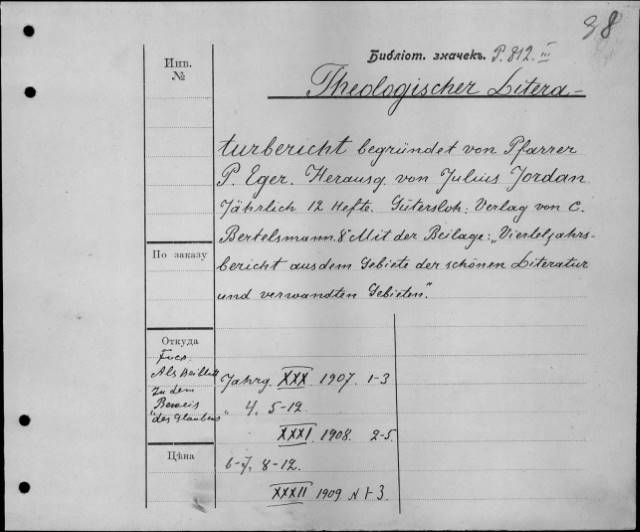 38
Инв.
№
Библіот. значекъ. P. 812. III
Theologischer Litera-
turbericht begründet von Pfarrer
P. Eger. Herausg. von Julius Jordan
Jährlich 12 Hefte. Gütersloh: Verlag von C.
Bertelsmann. 8° Mit der Beilage: „Vierteljahrs-
bericht aus dem Gebiete der schönen Literatur
und verwandten Gebieten."
По заказу
Откуда
Als Beiblatt
zu dem
Beweis
"des Glaubens"
Jahrg. XXX 1907. 1-3
4, 5-12.
XXXI. 1908. 2-5.
6-7, 8-12.
XXXII 1909 N 1-3.
Цѣна